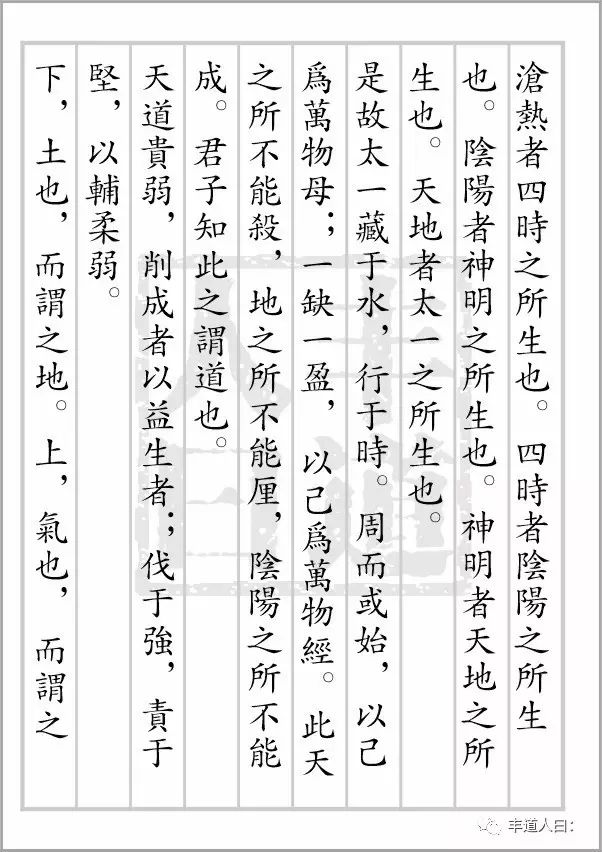 滄熱者四時之所生也。四時者陰陽之所生
也。陰陽者神明之所生也。神明者天地之所
生也。天地者太一之所生也。
是故太一藏于水，行于時。周而或始，以己
爲萬物母；一缺一盈，以己爲萬物經。此天
之所不能殺，地之所不能厘，陰陽之所不能
成。君子知此之謂道也。
天道貴弱，削成者以益生者；伐于強，責于
堅，以輔柔弱。
下，土也，而謂之地。上，氣也，而謂之
丰道人曰
丰道人曰：